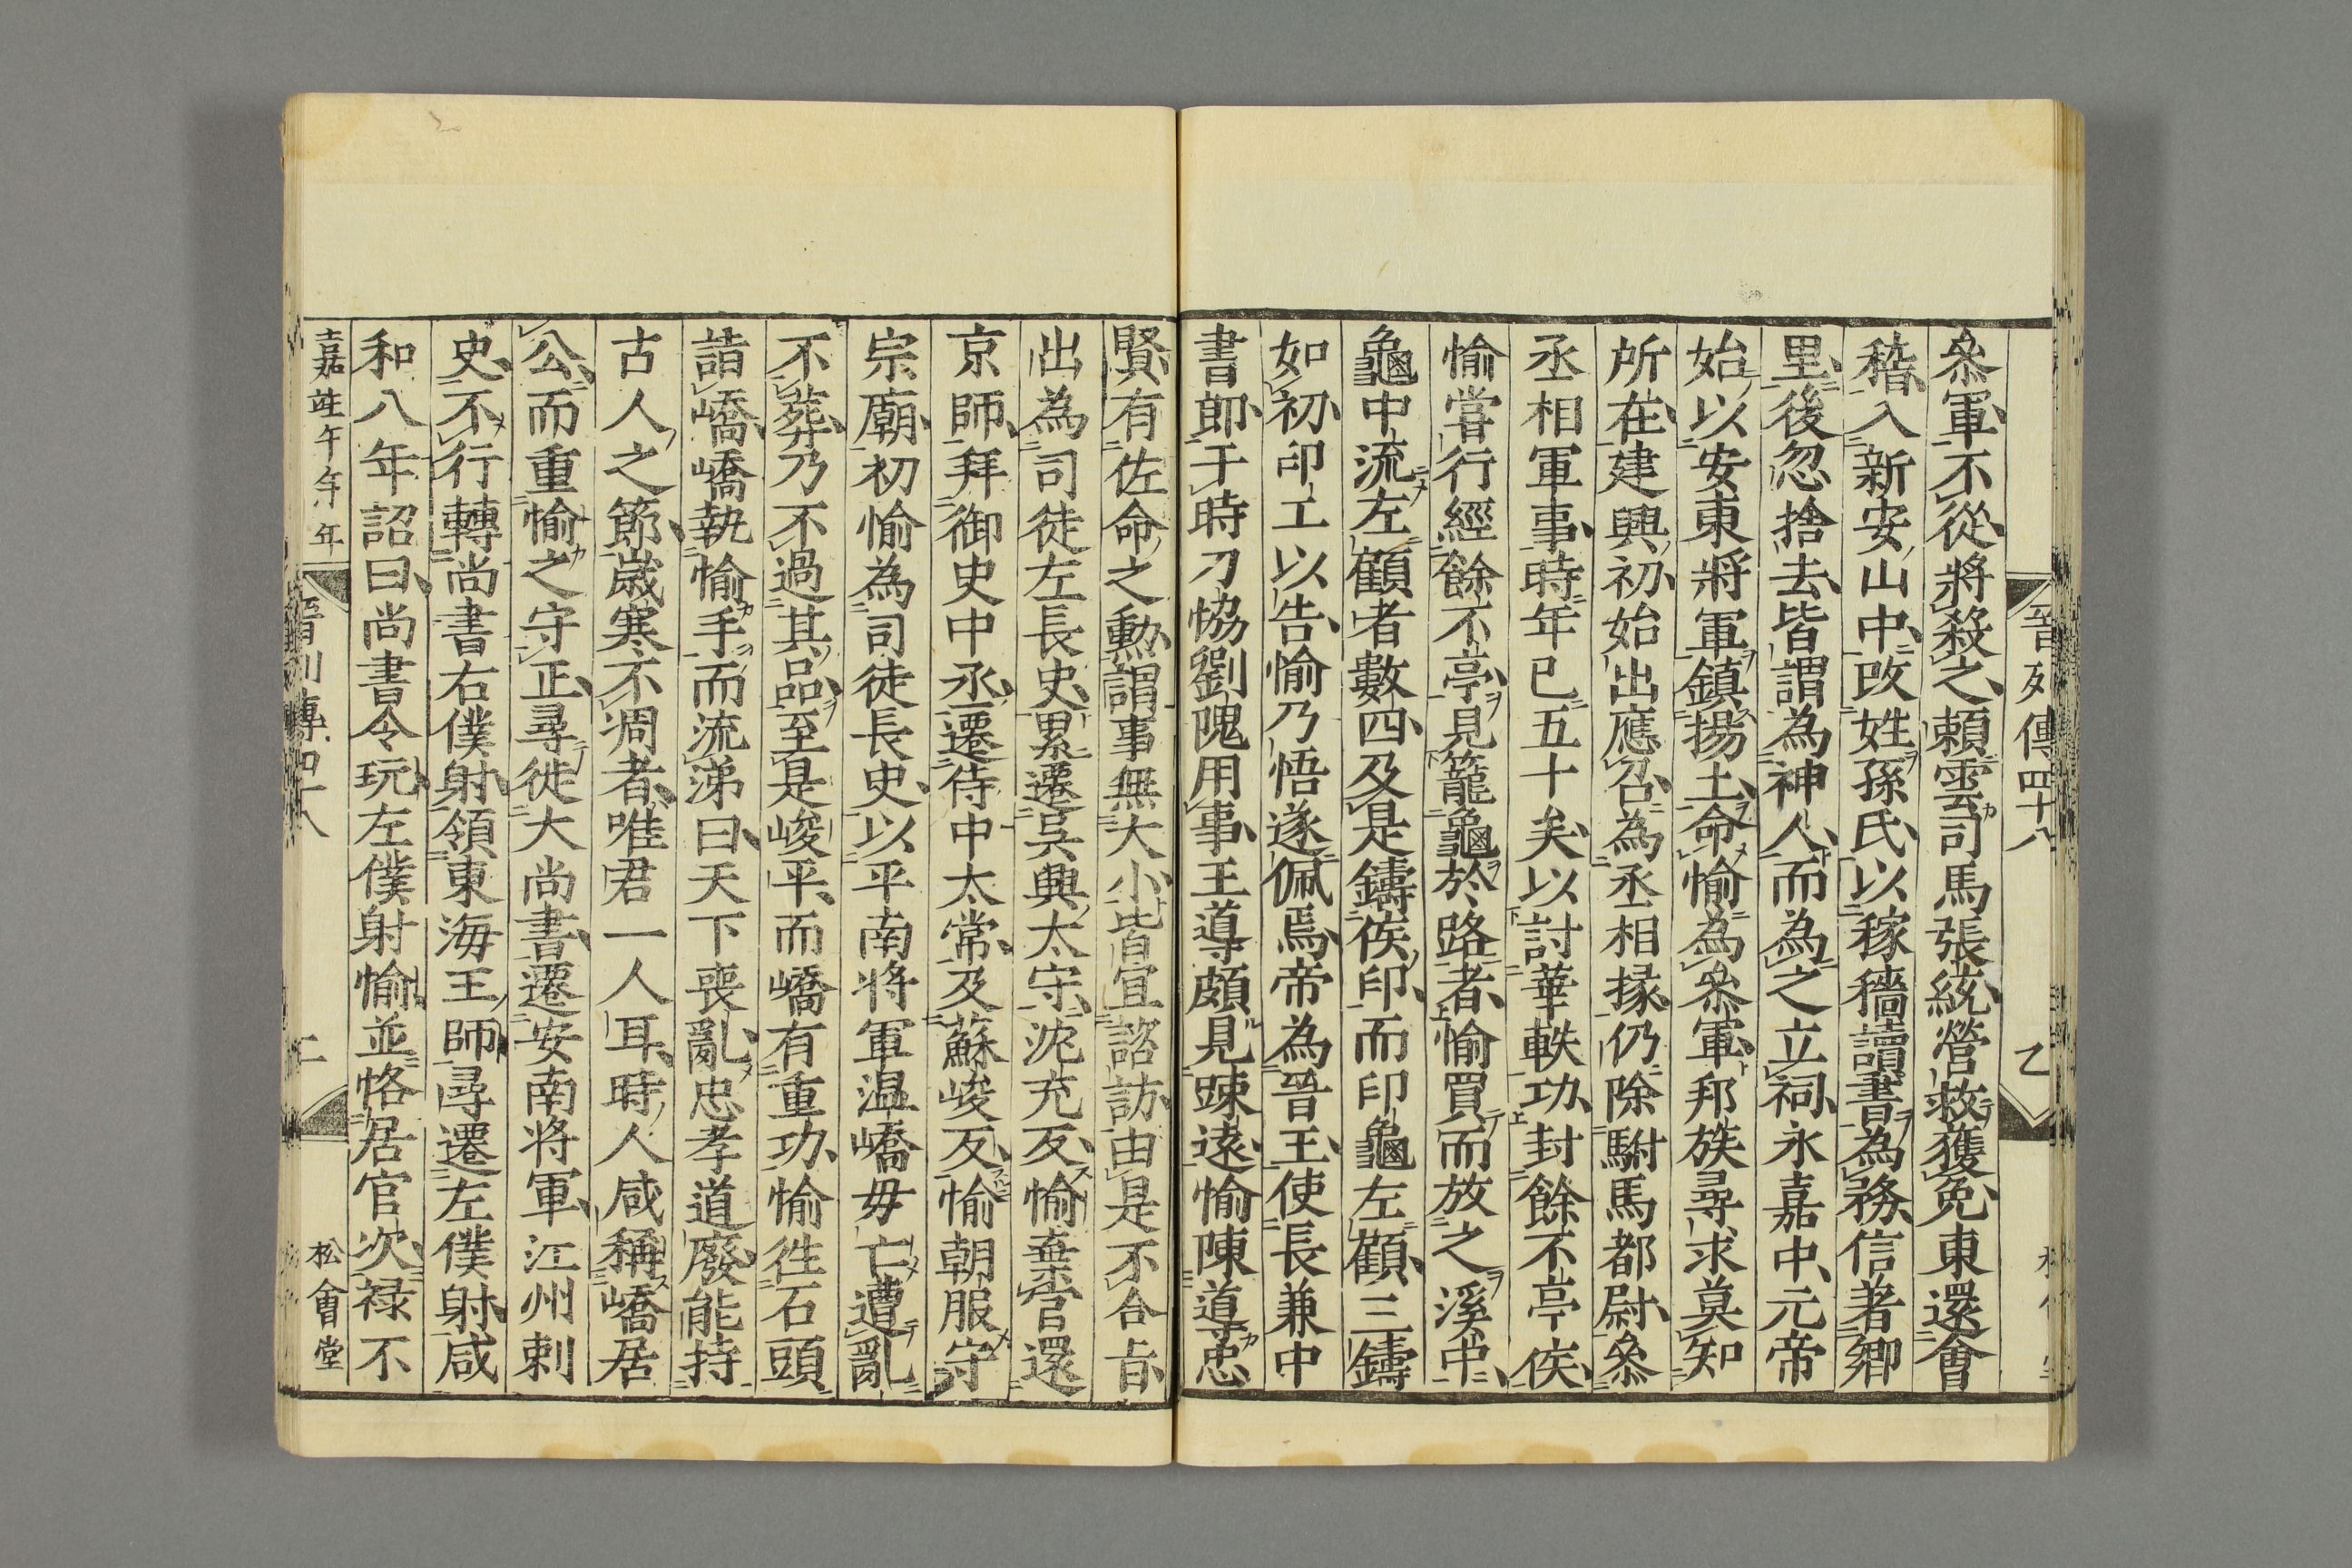 晉列傳四十八 乙
參軍不從將殺之賴雲司馬張統營救獲免東還會
稽入新安山中改姓孫氏以稼穡讀書為務信著鄉
里後忽捨去皆謂為神人而為之立祠永嘉中元帝
始以安東將軍鎮揚土命愉為參軍邦族尋求莫知
所在建興初始出應召為丞相掾仍除駙馬都尉參
丞相軍事時年已五十矣以討華軼功封餘不亭侯
愉嘗行經餘不亭見籠龜於路者愉買而放之溪中
龜中流左顧者數四及是鑄侯印而印龜左顧三鑄
如初印工以告愉乃悟遂佩焉帝為晉王使長兼中
書郎于時刁協劉隗用事王導頗見踈遠愉陳導忠
賢有佐命之勳謂事無大小皆宜諮訪由是不合旨
出為司徒左長史累遷吳興太守沈充反愉棄官還
京師拜御史中丞遷侍中太常及蘇峻反愉朝服守
宗廟初愉為司徒長史以平南將軍温嶠母亡遭亂
不葬乃不過其品至是峻平而嶠有重功愉徃石頭
詣嶠嶠執愉手而流涕曰天下喪亂忠孝道廢能持
古人之節歲寒不凋者唯君一人耳時人咸稱嶠居
公而重愉之守正尋徙大尚書遷安南將軍江州刺
史不行轉尚書右僕射領東海王師尋遷左僕射咸
和八年詔曰尚書令玩左僕射愉並恪居官次祿不
嘉 午年 年 晉列傳四十八 二 松會堂